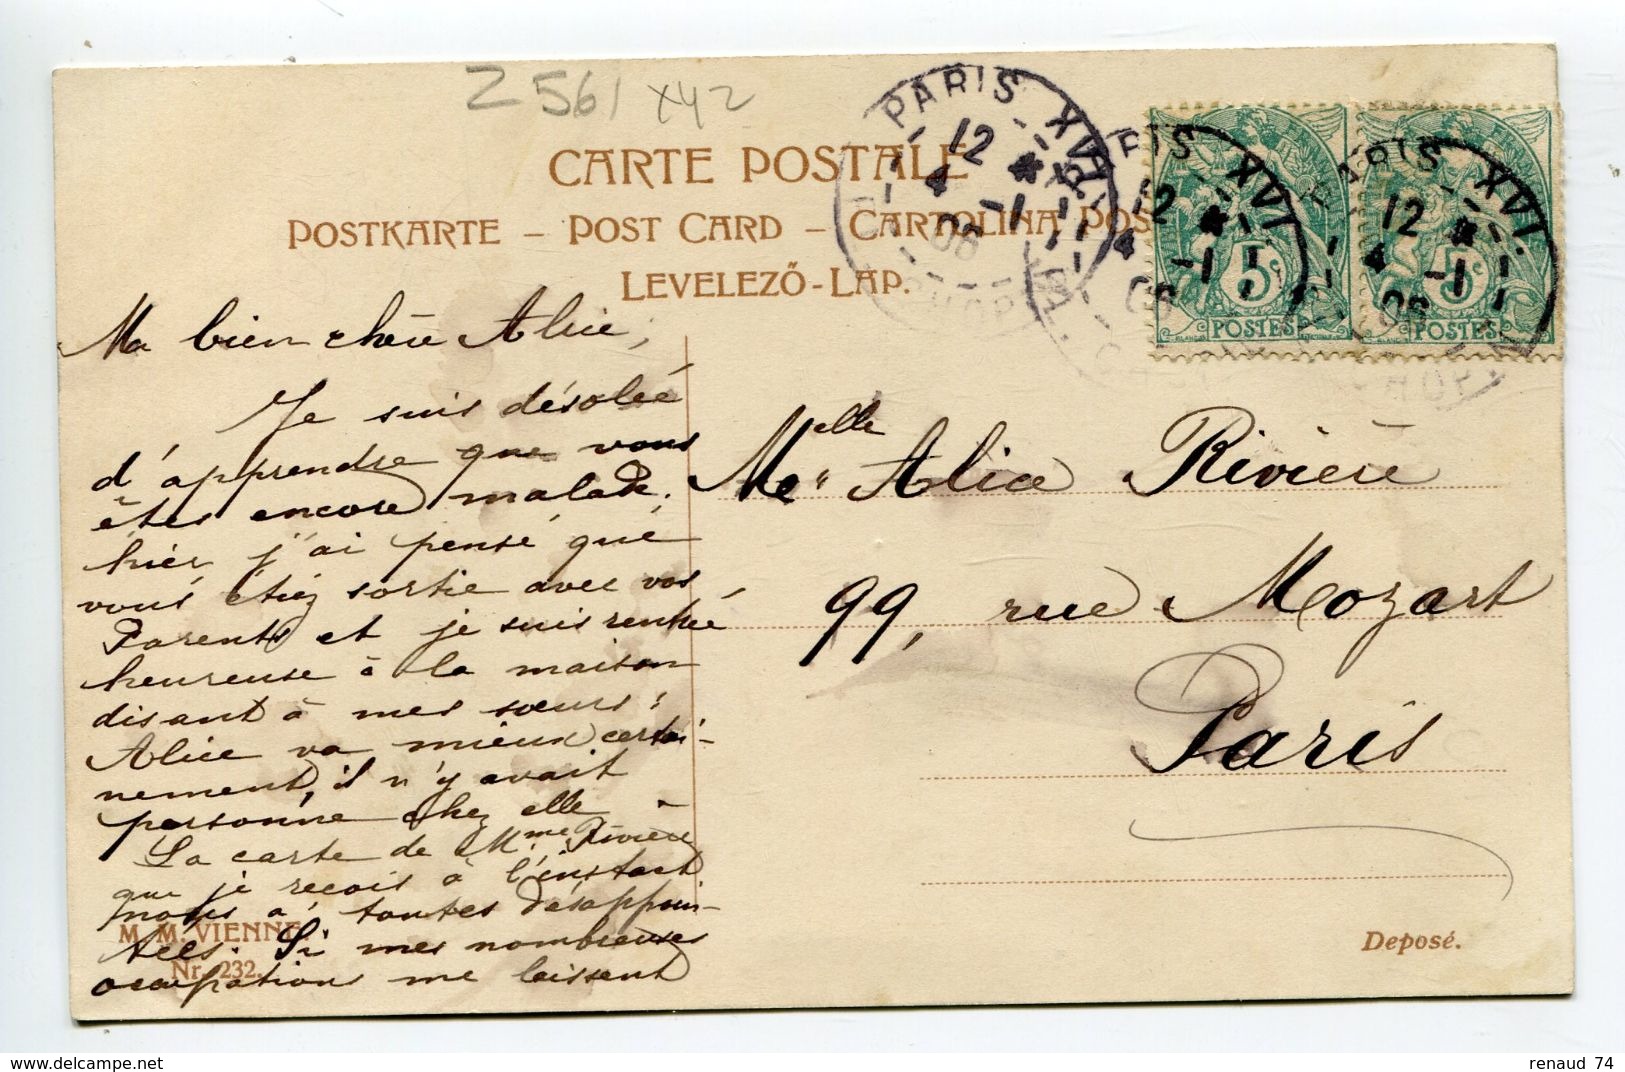 Z 561 X42
CARTE POSTALE
POSTKARTE – POST CARD – CARTOLINA POS
LEVELEZŐ-LAP.
PARIS XVI
12
4 -1
06
PARIS XVI
12
4 -1
06
PARIS XVI.
12
4 -1
06
5c
POSTES
5c
POSTES
Ma bien chère Alice,
Je suis désolée
d'apprendre que vous
êtes encore malade.
hier j'ai pensé que
vous étiez sortie avec vos
Parents et je suis rentrée
heureuse à la maison
disant à mes sœurs:
Alice va mieux certai-
nement, il n'y avait
personne chez elle -
La carte de Mme Rivière
que je reçois à l'instant
nous a toutes désappoin-
tées. Si mes nombreuses
occupations me laissent
M. M. VIENNE
Nr. 232.
Melle Alice Rivière
99, rue Mozart
Paris
Deposé.
renaud 74